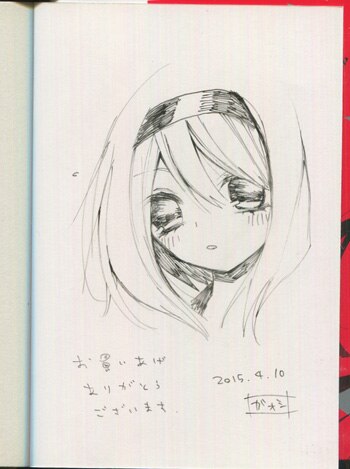 お買いあげ
ありがとう
ございます
2015.4.10
がおう